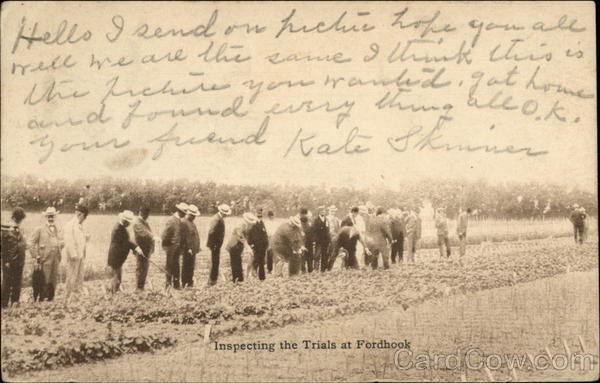 Hello I send on pictie hope you all
well we are the same I think this is
the picture you wanted, got home
and found every thing all O.K.
your friend Kate Skinner
Inspecting the Trials at Fordhook
CardCow.com